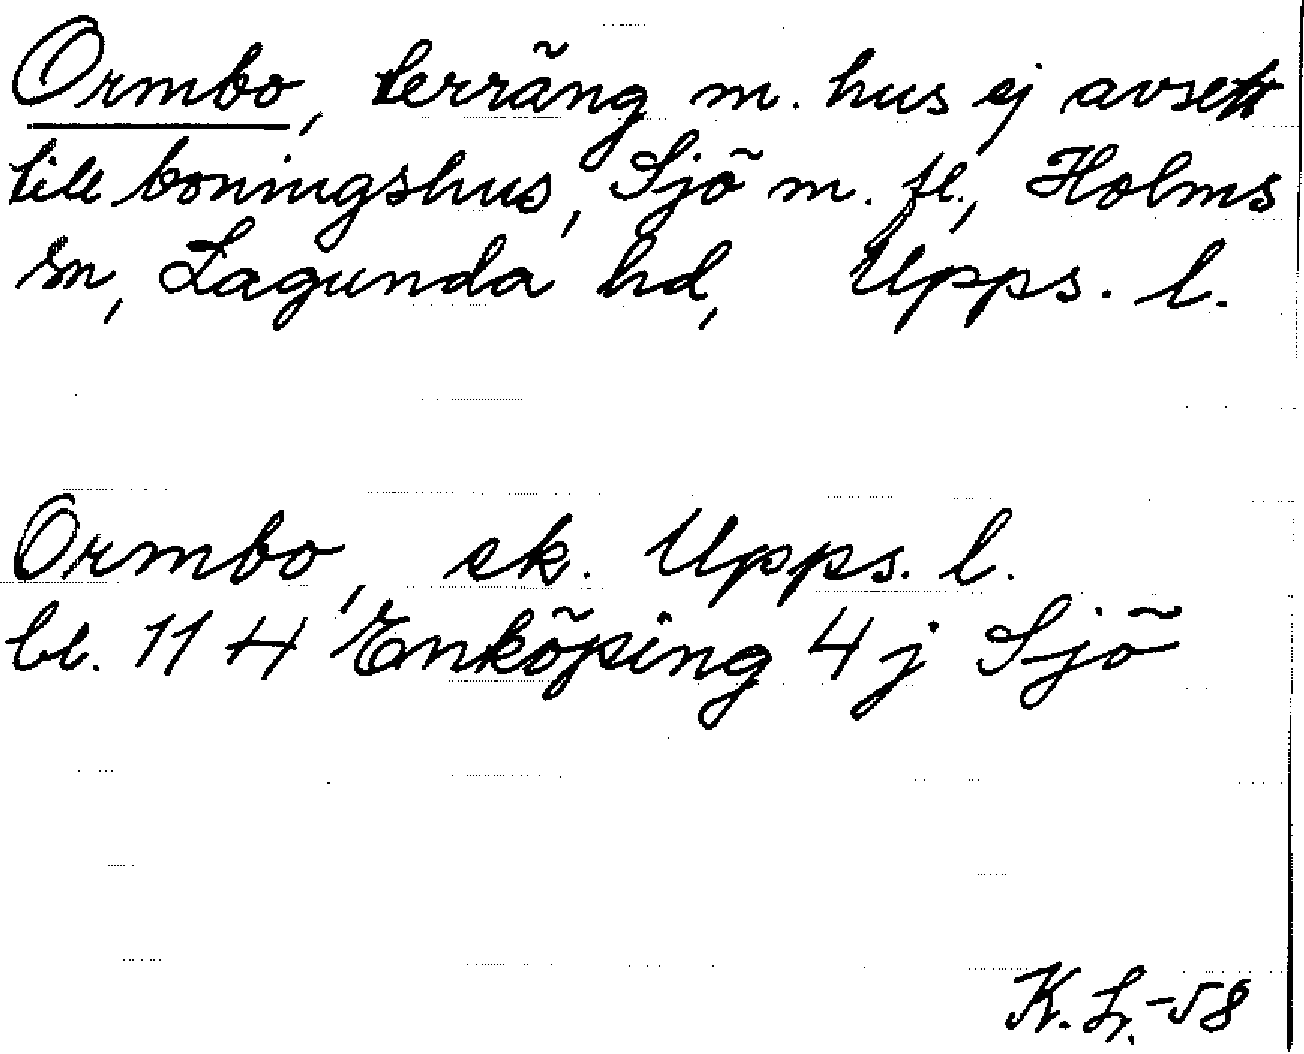 Ormbo, terräng m. hus ej avsett
till boningshus, Sjö m. fl., Holms
sn, Lagunda hd, Upps. l.
Ormbo, ek. Upps. l.
bl. 11 H Enköping 4 j Sjö
K. L. -58